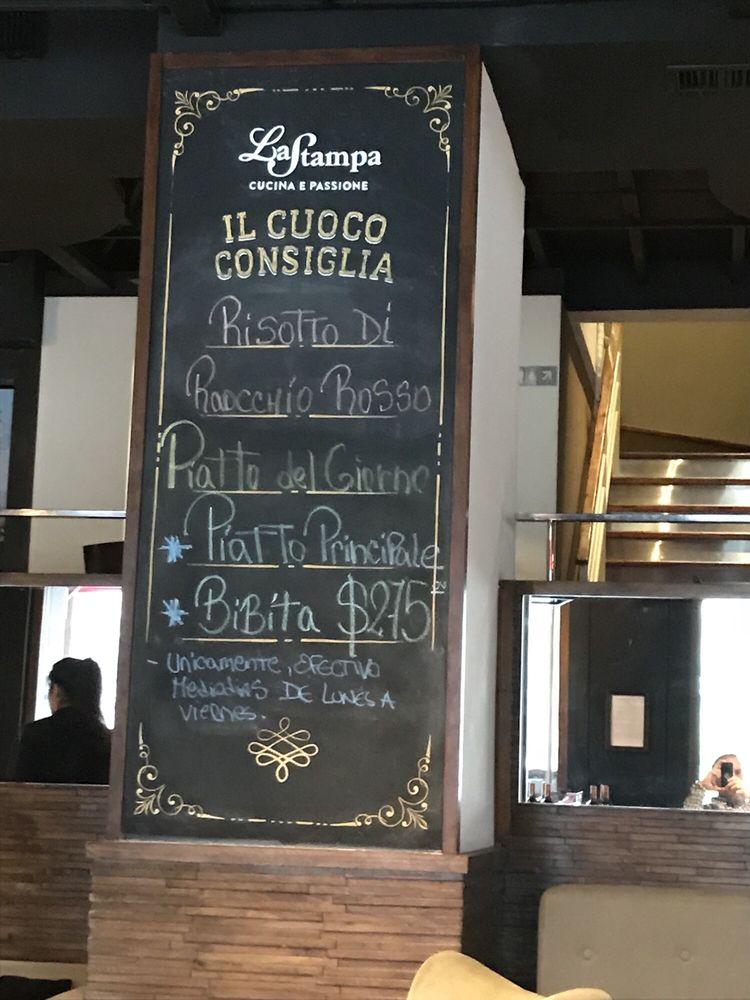 LaStampa
CUCINA E PASSIONE
IL CUOCO
CONSIGLIA
RisoTTo Di
RaDCCHio Rosso
PiaTTo del Giorno
* PiaTTo PrinciPale
* BiBiTa $275
- Unicamente, EFECTIVO
MedioDias DE LUNES A
vieRNes.